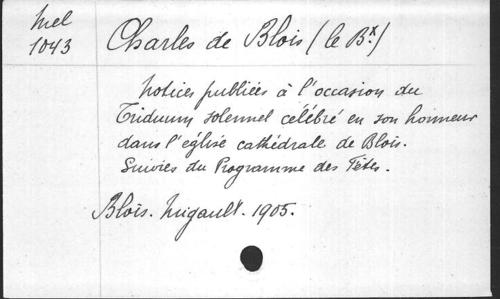 Mel
1043
Charles de Blois (le Bx.)
Notices publiées à l'occasion du
Triduum solennel célébré en son honneur
dans l'église cathédrale de Blois.
Suivies du Programme des Fêtes.
Blois. Migault. 1905.